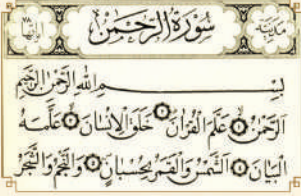 مدنية سُورَةُ الرَّحْمٰن اٰيٰتها ٧٨
بِسْمِ اللّٰهِ الرَّحْمٰنِ الرَّحِيْمِ
اَلرَّحْمٰنُ ۝١ عَلَّمَ الْقُرْاٰنَ ۝٢ خَلَقَ الْاِنْسَانَ ۝٣ عَلَّمَهُ
الْبَيَانَ ۝٤ اَلشَّمْسُ وَالْقَمَرُ بِحُسْبَانٍ ۝٥ وَالنَّجْمُ وَالشَّجَرُ